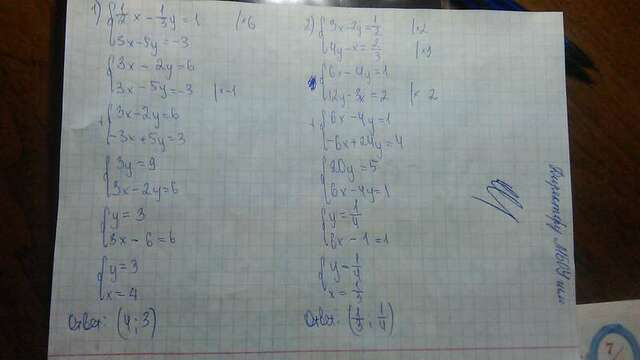 1) { 1/2 x - 1/3 y = 1 | ×6
3x - 5y = -3
{ 3x - 2y = 6
3x - 5y = -3 | ×-1
+ { 3x - 2y = 6
-3x + 5y = 3
{ 3y = 9
3x - 2y = 6
{ y = 3
3x - 6 = 6
{ y = 3
x = 4
Ответ: (4; 3)
2) { 3x - 2y = 1/2 | ×2
4y - x = 2/3 | ×3
{ 6x - 4y = 1
12y - 3x = 2 | × 2
+ { 6x - 4y = 1
-6x + 24y = 4
{ 20y = 5
6x - 4y = 1
{ y = 1/4
6x - 1 = 1
{ y = 1/4
x = 1/3
Ответ: (1/3; 1/4)
Директору
7